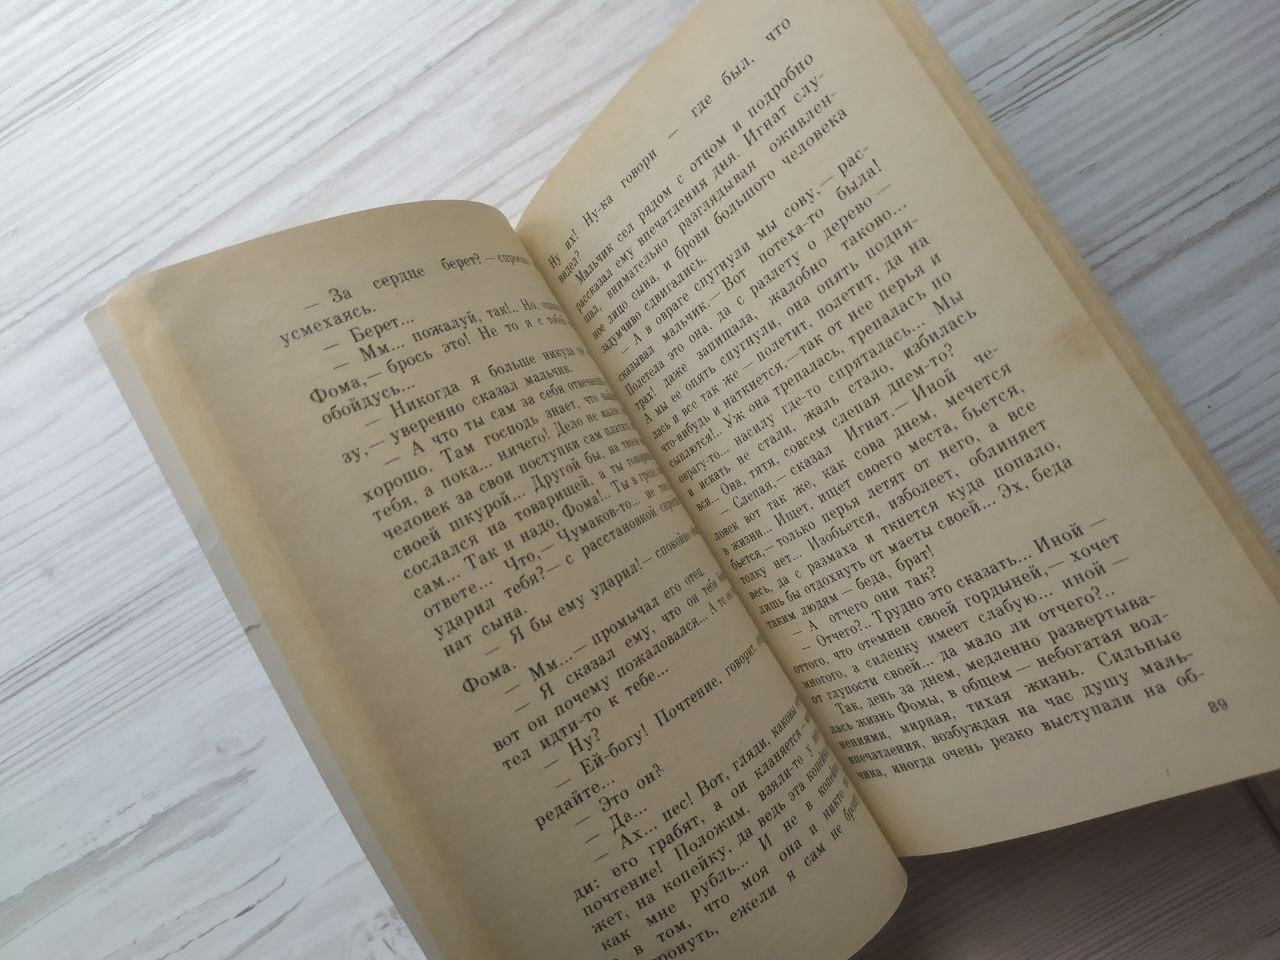 — За сердце берет? — спросил
усмехаясь.
— Берет...
— Мм... пожалуй, так!.. Но, одна
Фома, — брось это! Не то я с тобой
обойдусь...
— Никогда я больше никуда не
зу, — уверенно сказал мальчик.
— А что ты сам за себя отвечаешь
хорошо. Там господь знает, что вый
тебя, а пока... ничего! Дело не малое
человек за свои поступки сам платит
своей шкурой... Другой бы, на твоем
сослался на товарищей, а ты говоришь
сам... Так и надо, Фома!.. Ты в грехе
ответе... Что, — Чумаков-то... не то
ударил тебя? — с расстановкой спроси
нат сына.
— Я бы ему ударил! — спокойно
Фома.
— Мм... — промычал его отец.
— Я сказал ему, что он тебя
вот он почему пожаловался... А то
тел идти-то к тебе...
— Ну?
— Ей-богу! Почтение, говорит,
редайте...
— Это он?
— Да...
— Ах... пес! Вот, гляди, каковы
ди: его грабят, а он кланяется —
почтение! Положим, взяли-то у
жет, на копейку, да ведь эта копейка
как мне рубль... И не в копейке
в том, что моя она и никто
ронуть, ежели я сам не брошу
Ну их! Ну-ка говори — где был, что
видел?
Мальчик сел рядом с отцом и подробно
рассказал ему впечатления дня. Игнат слу-
шал, внимательно разглядывая оживлен-
ное лицо сына, и брови большого человека
задумчиво сдвигались.
— А в овраге спугнули мы сову, — рас-
сказывал мальчик. — Вот потеха-то была!
Полетела это она, да с разлету о дерево —
трах! даже запищала, жалобно таково...
А мы ее опять спугнули, она опять подня-
лась и все так же — полетит, полетит, да на
что-нибудь и наткнется, — так от нее перья и
сыплются!.. Уж она трепалась, трепалась по
оврагу-то... насилу где-то спряталась... Мы
и искать не стали, жаль стало, избилась
вся... Она, тятя, совсем слепая днем-то?
— Слепая, — сказал Игнат. — Иной че-
ловек вот так же, как сова днем, мечется
в жизни... Ищет, ищет своего места, бьется,
бьется, — только перья летят от него, а все
толку нет... Изобьется, изболеет, облиняет
весь, да с размаха и ткнется куда попало,
лишь бы отдохнуть от маеты своей... Эх, беда
таким людям — беда, брат!
— А отчего они так?
— Отчего?.. Трудно это сказать... Иной —
оттого, что отемнен своей гордыней, — хочет
многого, а силенку имеет слабую... иной —
от глупости своей... да мало ли отчего?..
Так, день за днем, медленно развертыва-
лась жизнь Фомы, в общем — небогатая вол-
нениями, мирная, тихая жизнь. Сильные
впечатления, возбуждая на час душу маль-
чика, иногда очень резко выступали на об-
89